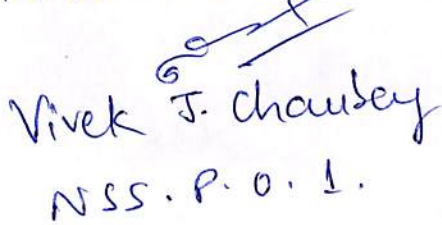 Vivek J. Chaubey
NSS. P. O. 1.